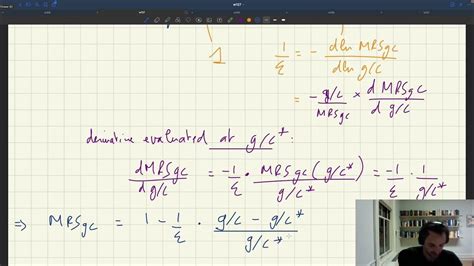 1
1/ε = - dln MRSgc / dln g/c
= - g/c / MRSgc × d MRSgc / d g/c
derivative evaluated at g/c*:
dMRSgc / d g/c = -1/ε · MRSgc(g/c*) / g/c* = -1/ε · 1 / g/c*
⇒ MRSgc = 1 - 1/ε · g/c - g/c* / g/c*